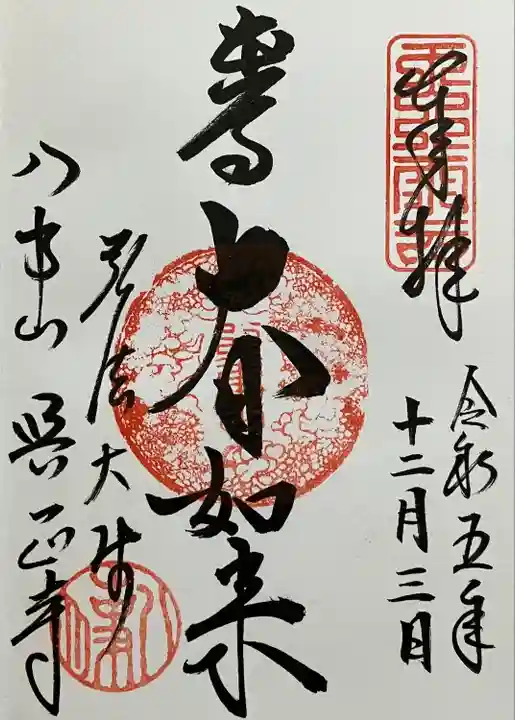 奉拝
令和五年
十二月三日
大日如来
弘法大師
八事山 興正寺